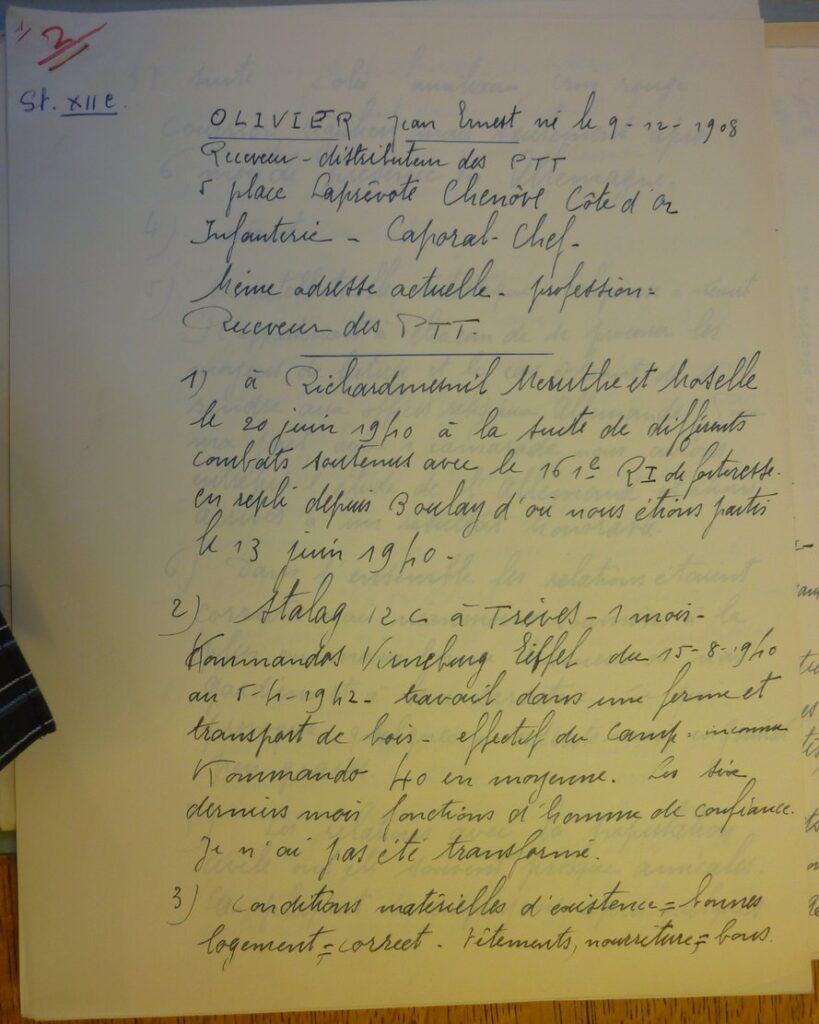 2
St. XII C.
OLIVIER Jean Ernest né le 9-12-1908
Receveur-distributeur des PTT
5 place Laprévote Chenôve Côte d'Or
Infanterie - Caporal-Chef-
Même adresse actuelle - profession =
Receveur des PTT.
1) à Richardmesnil Meurthe et Moselle
le 20 juin 1940 à la suite de différents
combats soutenus avec le 161e RI de forteresse.
en repli depuis Boulay d'où nous étions partis
le 13 juin 1940 -
2) Stalag 12 C à Trèves - 1 mois -
Kommandos Virneburg Eiffel du 15-8-1940
au 5-4-1942 - travail dans une ferme et
transport de bois - effectif du camp = inconnu
Kommando 40 en moyenne. Les six
derniers mois fonctions d'homme de confiance.
Je n'ai pas été transformé.
3) Conditions matérielles d'existence = bonnes
logement = correct - Vêtements, nourriture = bons.